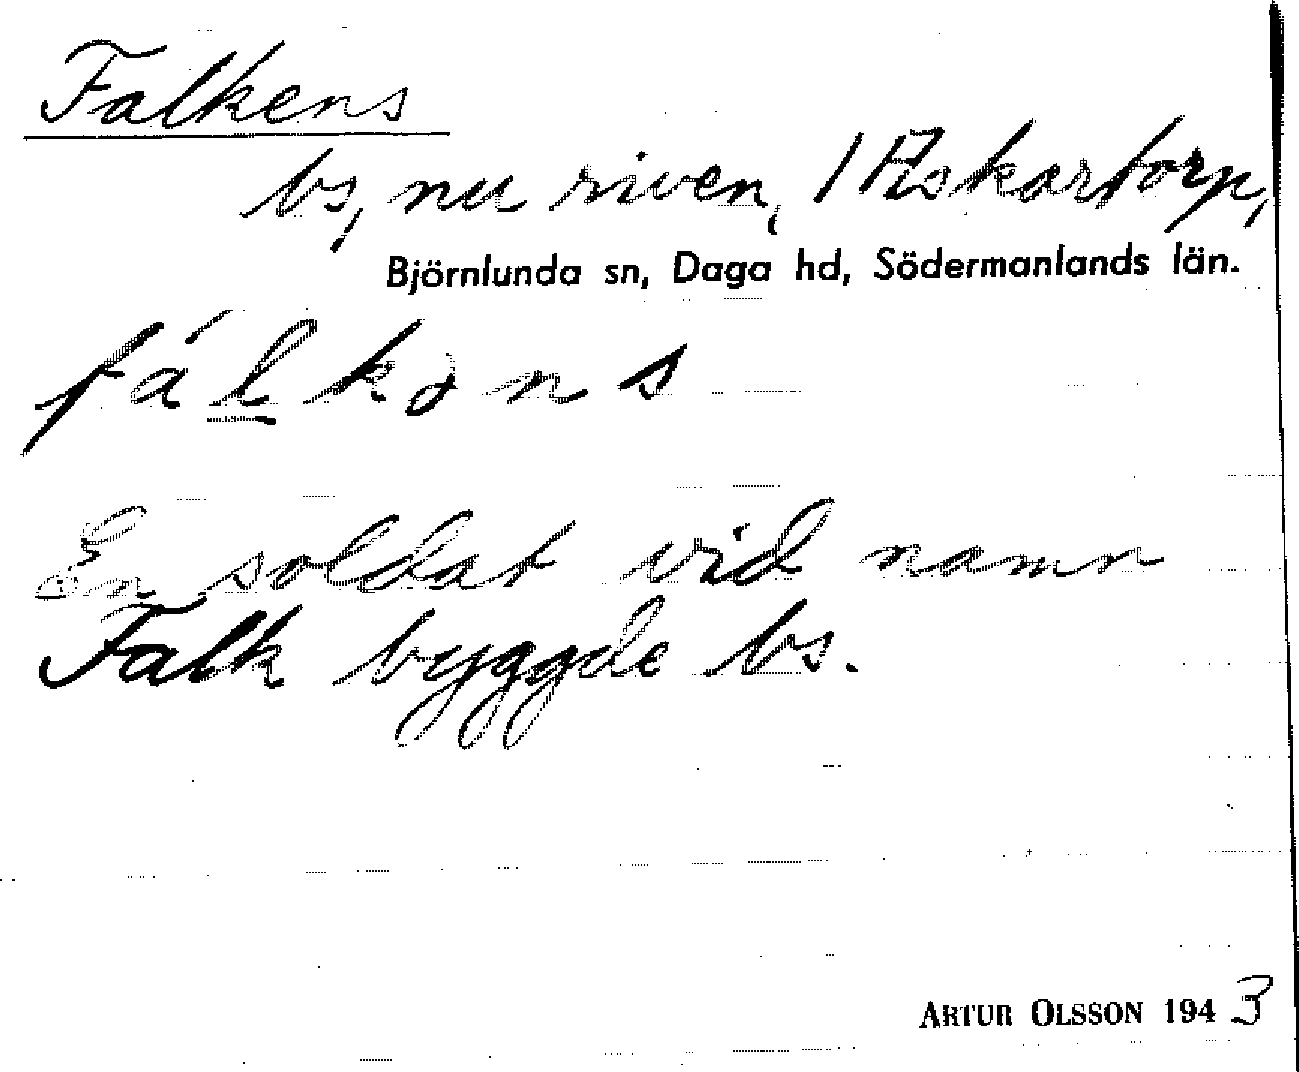 Falkens
bs, nu riven, 1 Askartorp,
Björnlunda sn, Daga hd, Södermanlands län.
fálkəns
En soldat vid namn
Falk byggde bs.
ARTUR OLSSON 1943